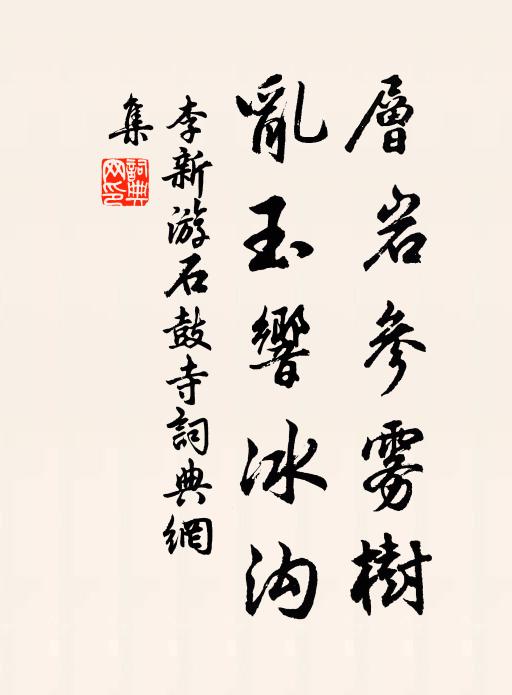 層岩參霧樹
亂玉響冰沟
李新游石鼓寺詞典網
集
詞典
网印